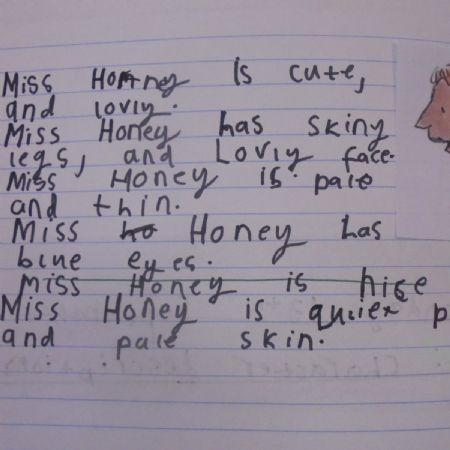 Miss Honey is cute,
and lovly.
Miss Honey has skiny
legs, and Lovly face.
Miss Honey is pale
and thin.
Miss Honey has
blue eyes.
Miss Honey is nice
Miss Honey is p
and pale skin.